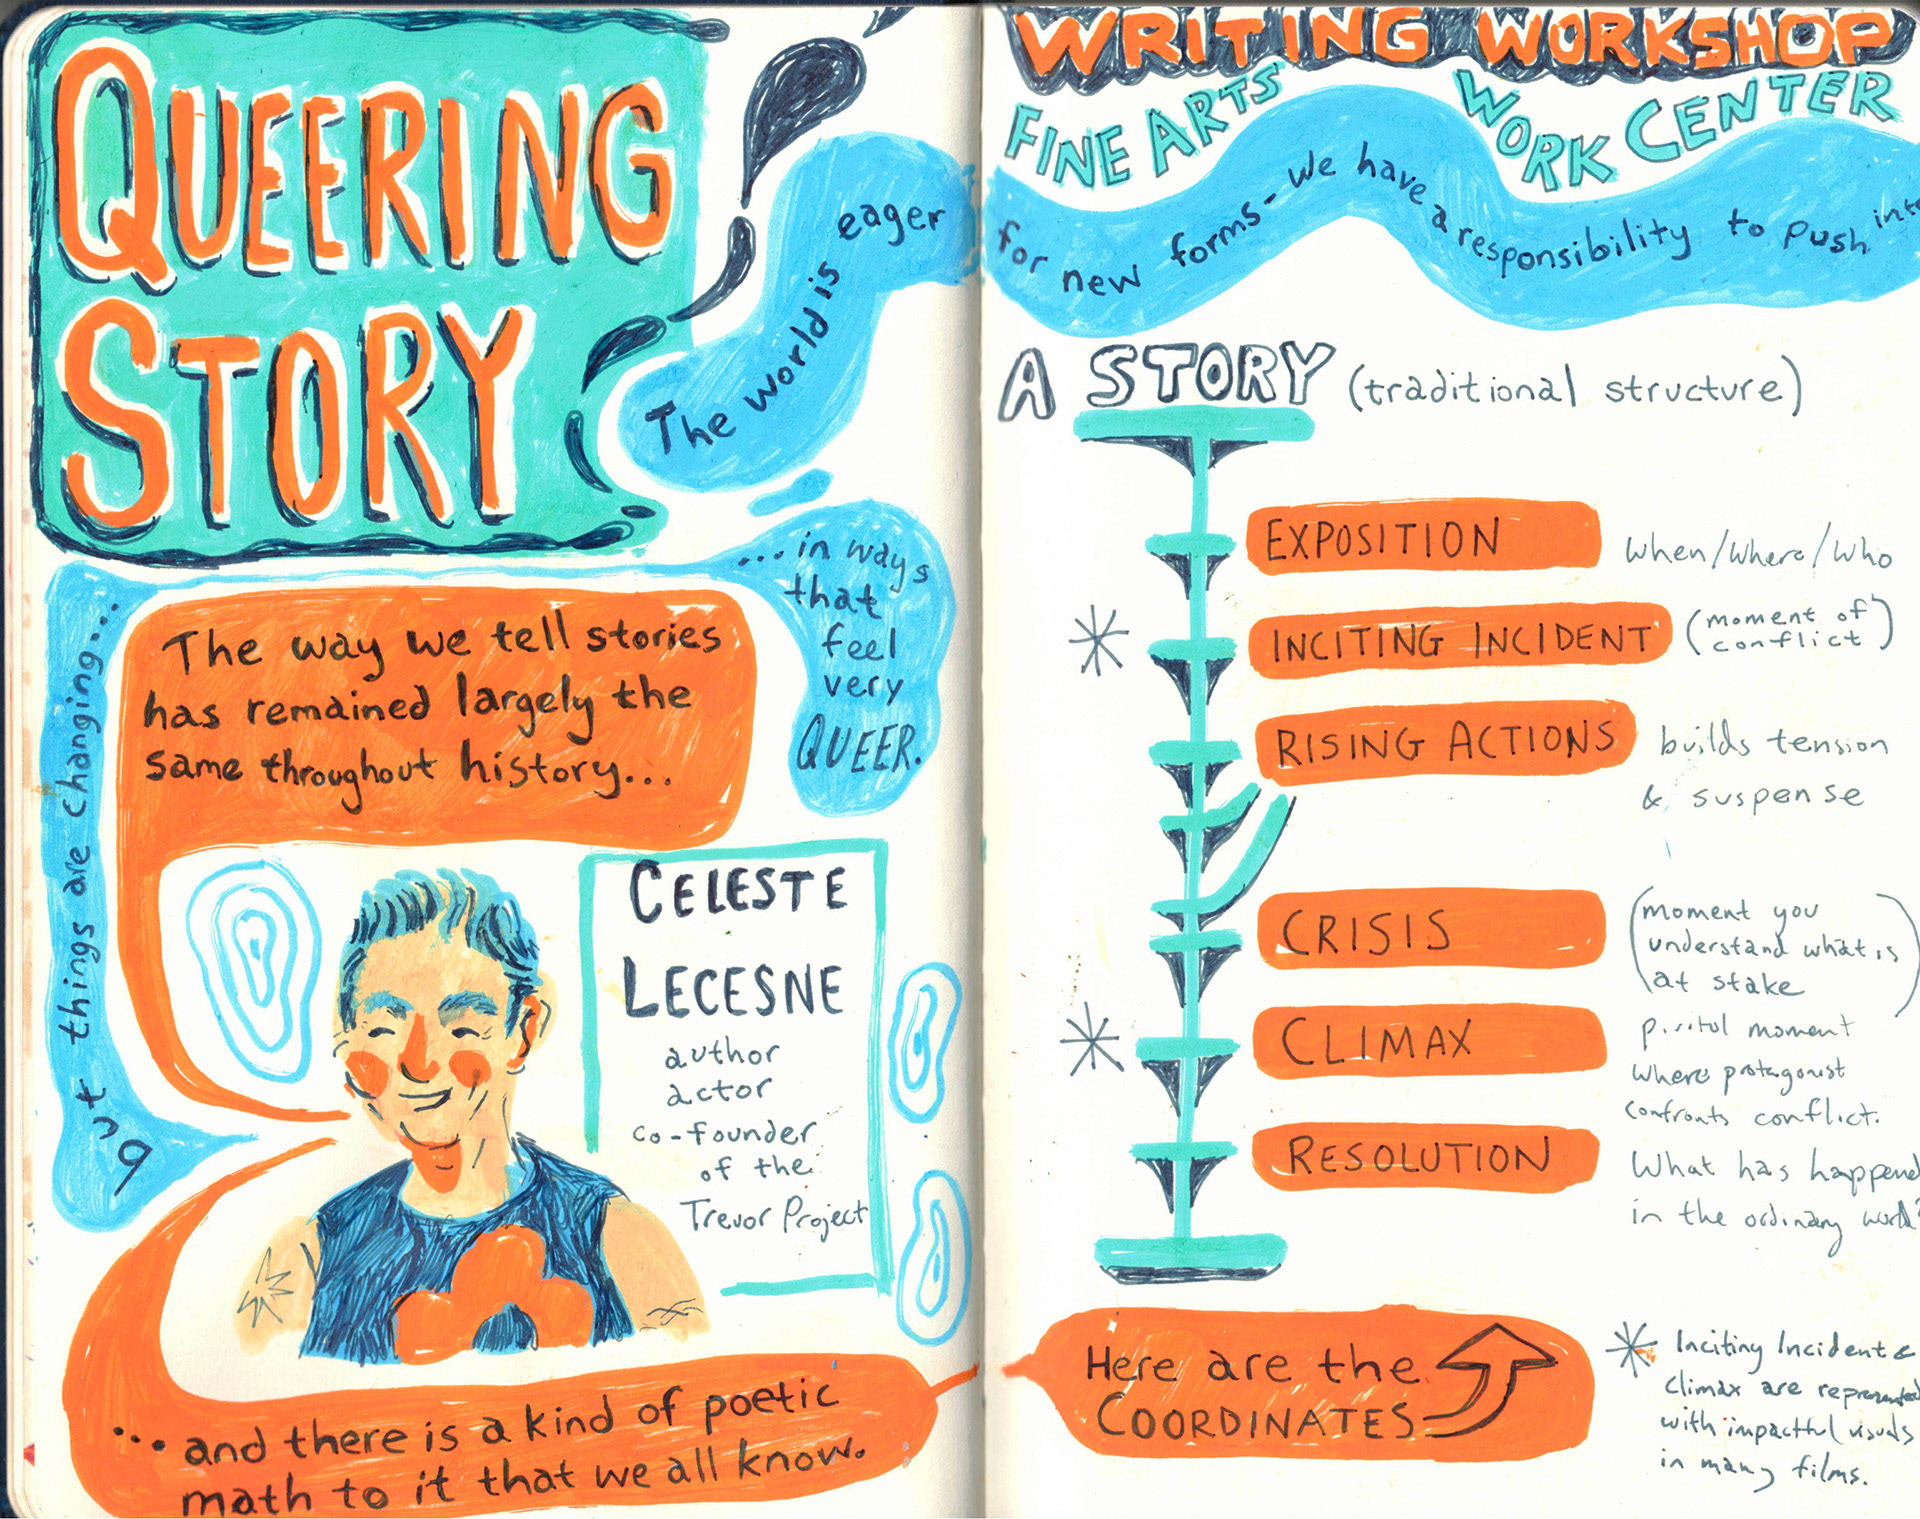 QUEERING
STORY
The world is eager
for new forms- we have a responsibility to push into
... in ways
that
feel
very
QUEER.
The way we tell stories
has remained largely the
same throughout history...
but things are changing...
CELESTE
LECESNE
author
actor
co-founder
of the
Trevor Project
... and there is a kind of poetic
math to it that we all know.
WRITING WORKSHOP
FINE ARTS WORK CENTER
A STORY (traditional structure)
EXPOSITION
When/Where/Who
INCITING INCIDENT
(moment of
conflict)
RISING ACTIONS
builds tension
& suspense
CRISIS
(moment you
understand what is
at stake)
CLIMAX
pivotal moment
where protagonist
confronts conflict.
RESOLUTION
What has happened
in the ordinary world?
Here are the
COORDINATES
* Inciting Incident &
Climax are represented
with impactful visuals
in many films.